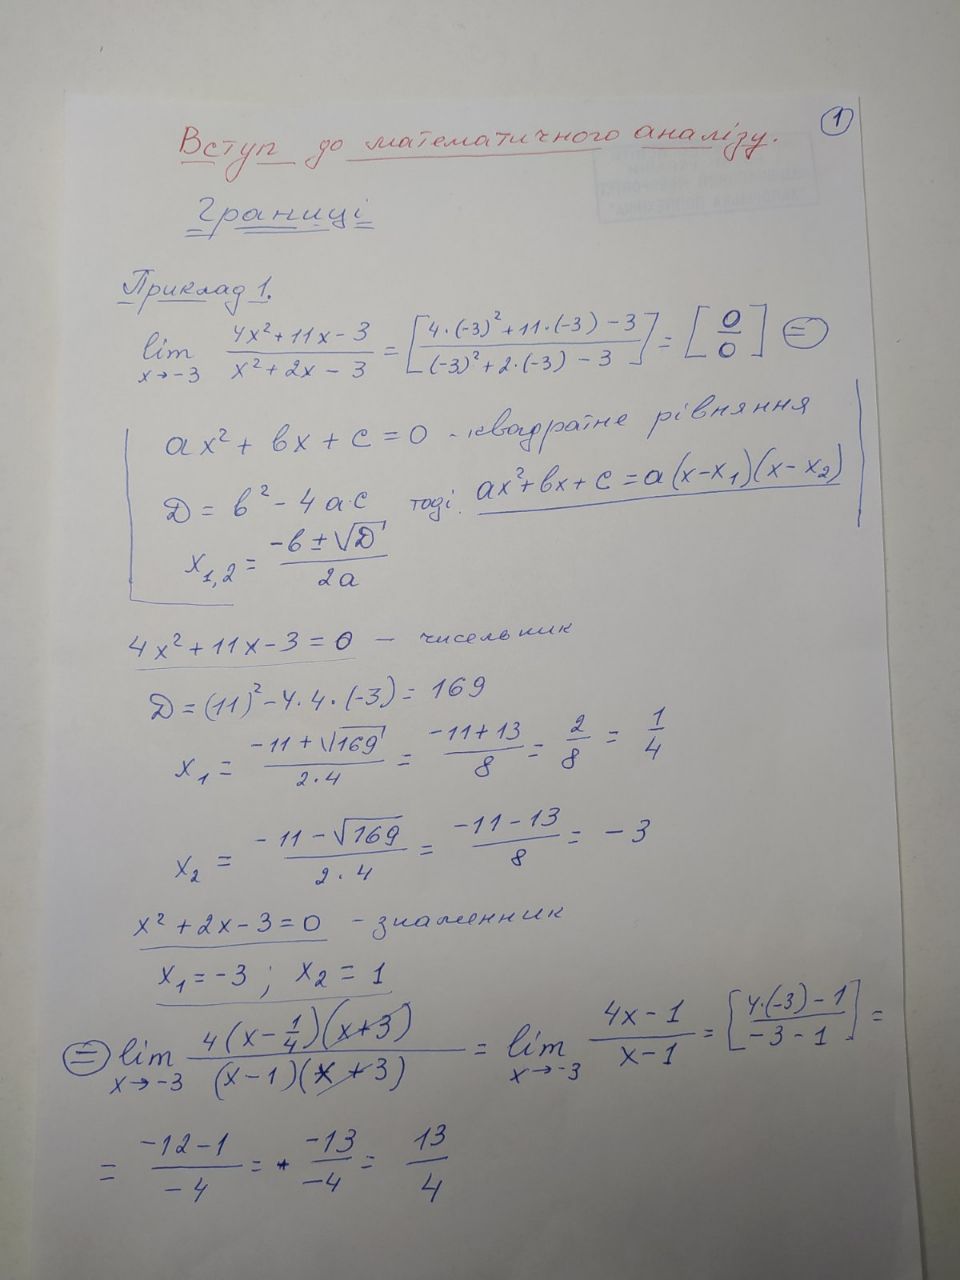 1
Вступ до математичного аналізу.
Границі
Приклад 1.
lim x→-3 (4x²+11x-3)/(x²+2x-3) = [(4·(-3)²+11·(-3)-3)/((-3)²+2·(-3)-3)] = [0/0] ⊜
ax²+bx+c=0 - квадратне рівняння
D = b²-4ac тоді: ax²+bx+c=a(x-x₁)(x-x₂)
x₁,₂ = (-b±√D)/(2a)
4x²+11x-3=0 - чисельник
D=(11)²-4·4·(-3)=169
x₁ = (-11+√169)/(2·4) = (-11+13)/8 = 2/8 = 1/4
x₂ = (-11-√169)/(2·4) = (-11-13)/8 = -3
x²+2x-3=0 - знаменник
x₁=-3; x₂=1
⊜ lim x→-3 (4(x-1/4)(x+3))/((x-1)(x+3)) = lim x→-3 (4x-1)/(x-1) = [(4·(-3)-1)/(-3-1)] =
= (-12-1)/(-4) = (-13)/(-4) = 13/4